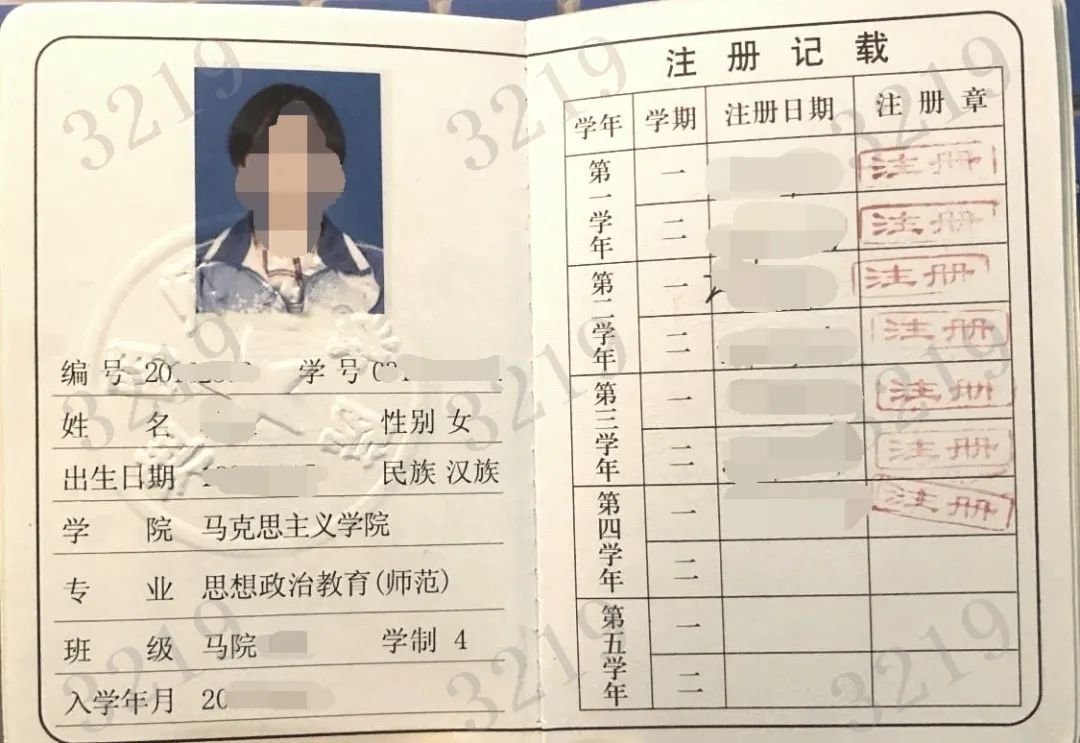 编号 20
学号
姓名
性别 女
出生日期
民族 汉族
学院 马克思主义学院
专业 思想政治教育(师范)
班级 马院
学制 4
入学年月 20
注册记载
学年 学期 注册日期 注册章
第一学年 一 注册
二 注册
第二学年 一 注册
二 注册
第三学年 一 注册
二 注册
第四学年 一 注册
二
第五学年 一
二
3219 3219 3219
3219 3219 3219
3219 3219 3219